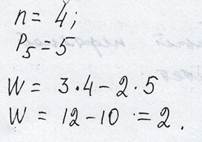 n = 4;
P₅ = 5
W = 3·4 – 2·5
W = 12 – 10 = 2.